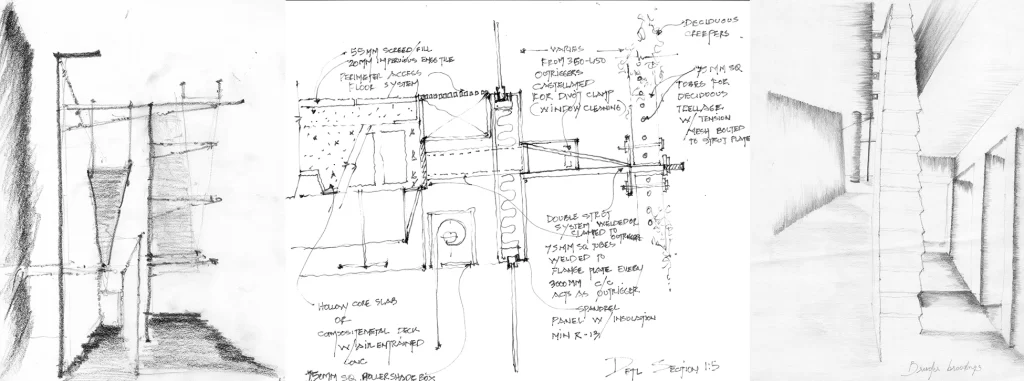 55MM SCREED/FILL
20MM IMPERVIOUS
PERIMETER ACCESS
FLOOR SYSTEM
VARIES
FROM 350-450
OUTRIGGERS
CASTELLATED
FOR PIVOT CLAMP
WINDOW CLEANING
DECIDUOUS
CREEPERS
75MM SQ
TUBES FOR
DECIDUOUS
TRELLAGE
W/ TENSION
MESH BOLTED
TO STRUT PLATE
DOUBLE STRUT
SYSTEM WELDED OR
CLAMPED TO
OUTRIGGER
75MM SQ TUBES
WELDED TO
FLANGE PLATE EVERY
3000MM C/C
ACTS AS OUTRIGGER
SPANDREL
PANEL W/ INSULATION
MIN R-13
HOLLOW CORE SLAB
OR
COMPOSITE METAL DECK
W/ AIR ENTRAINED
CONC
150MM SQ. ROLLER SHADE BOX
DETL SECTION 1:5